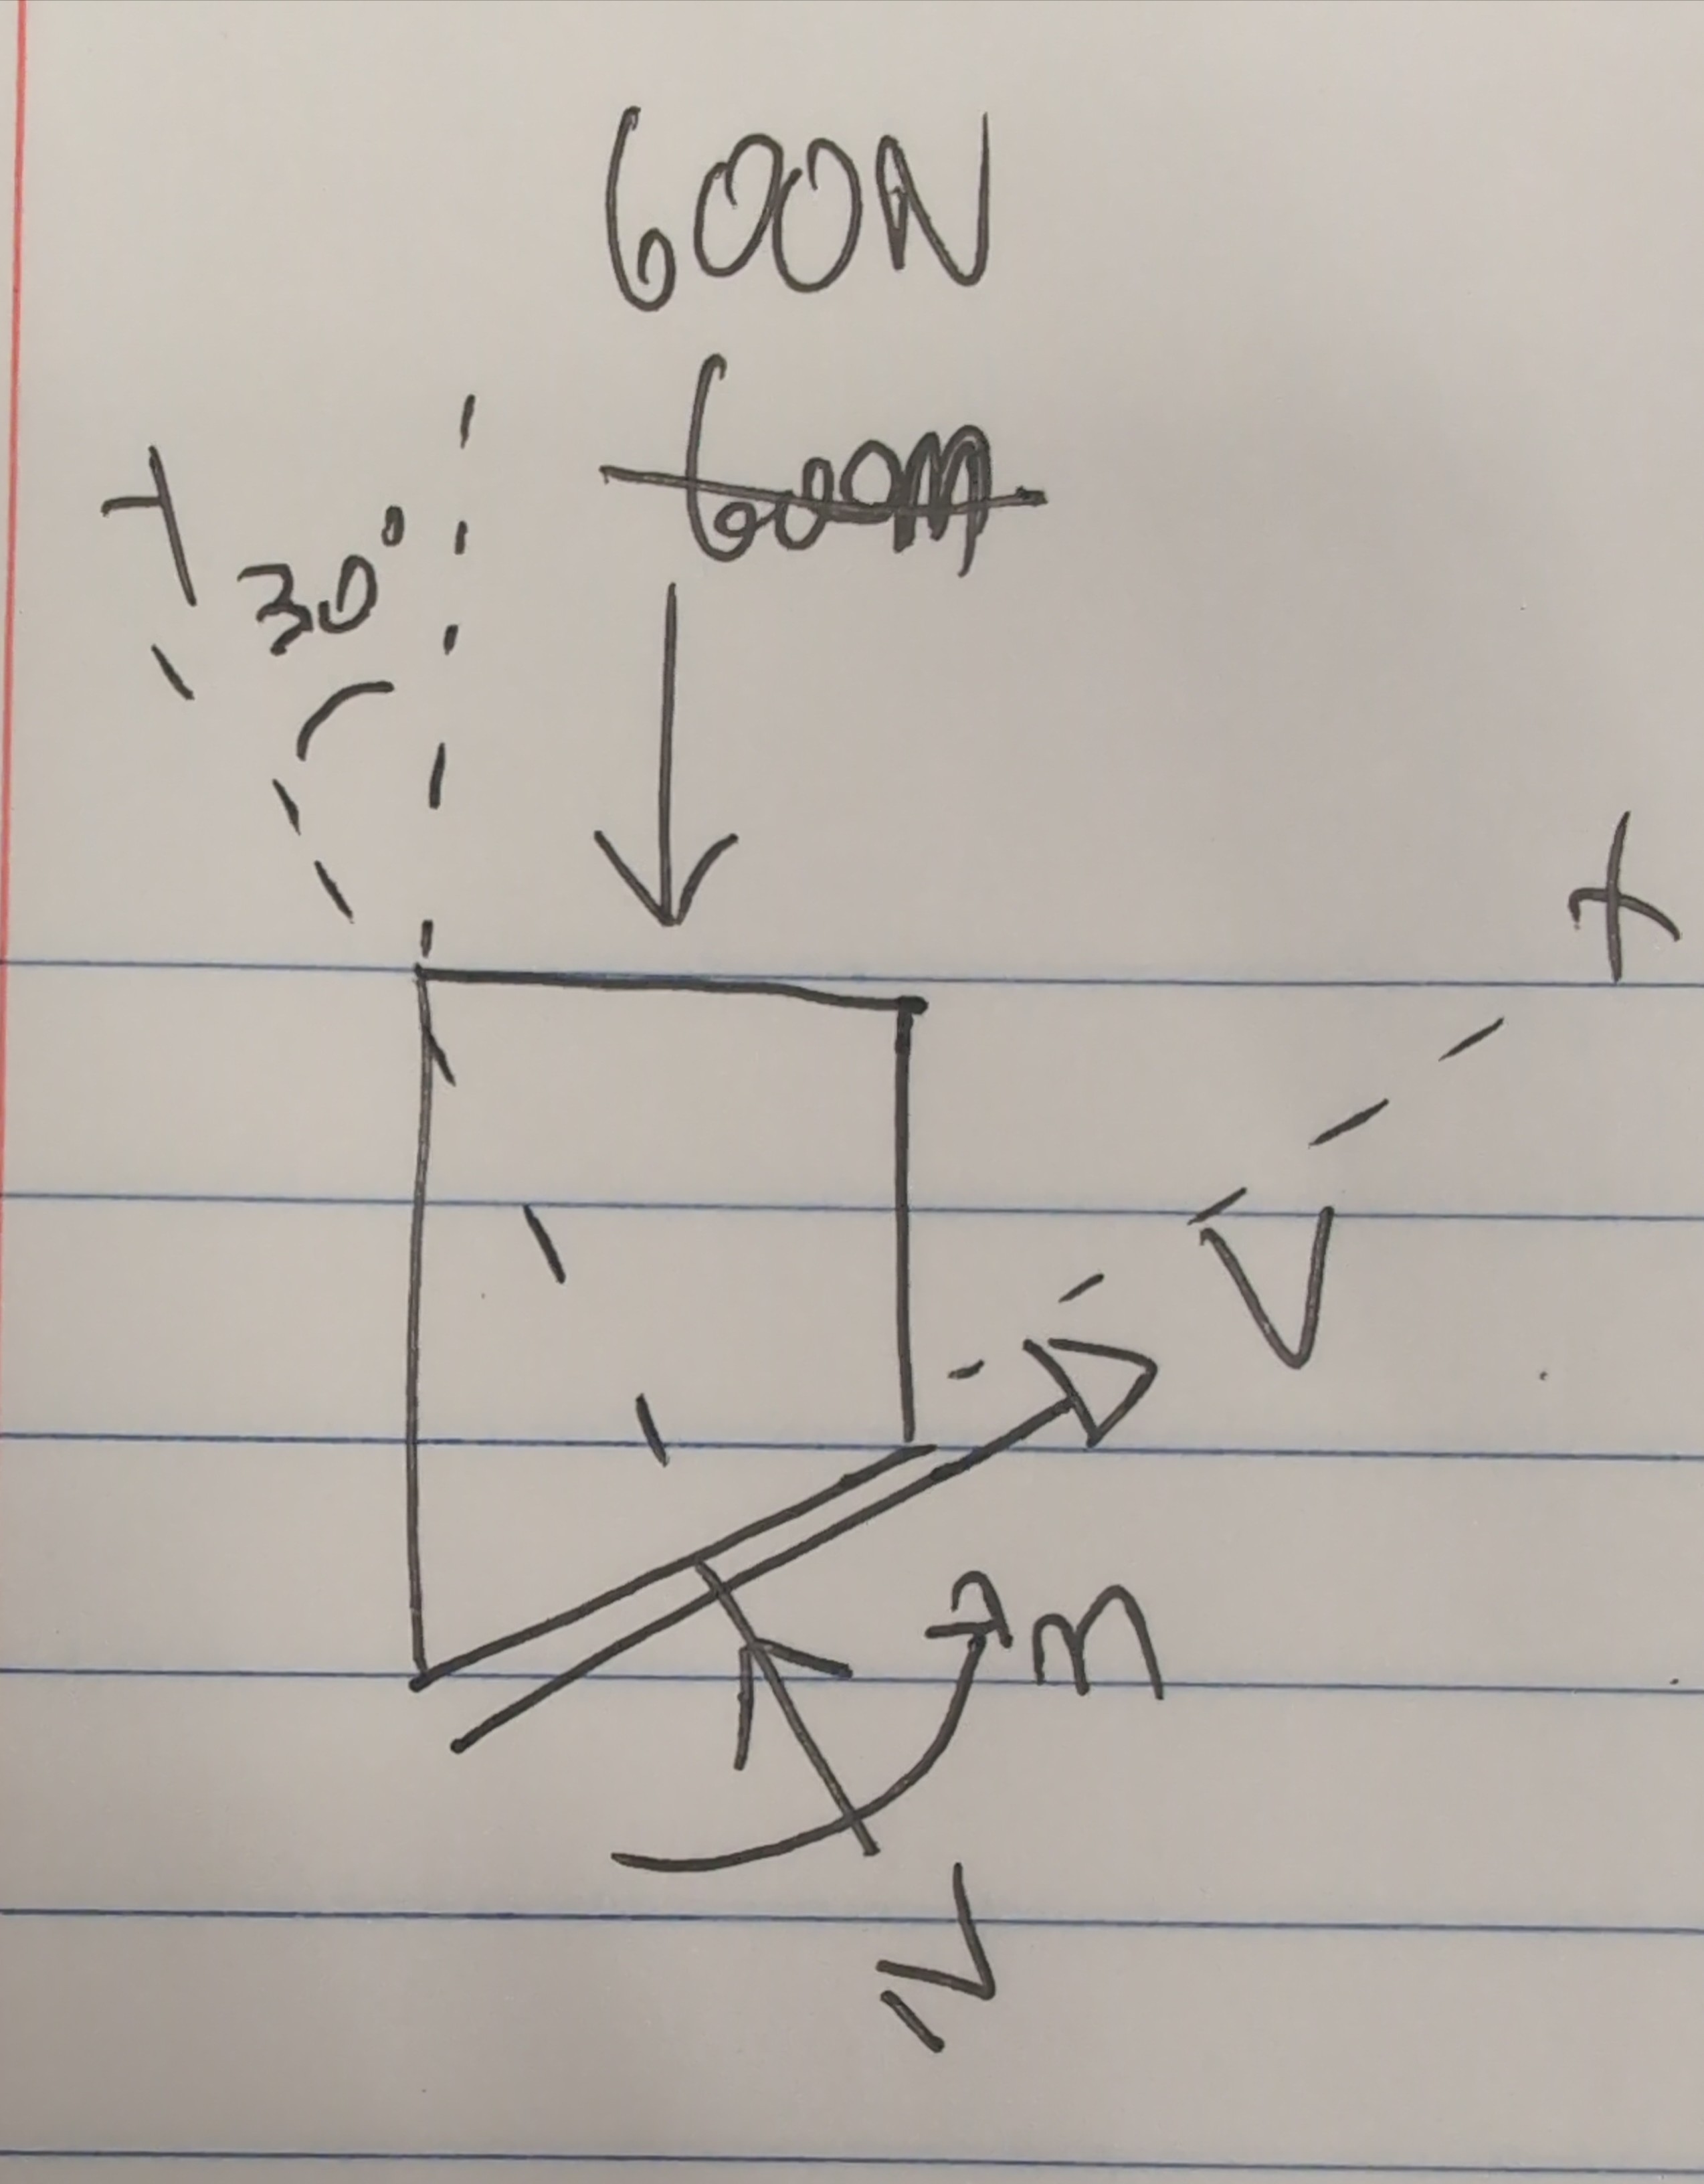 600N
600m
Y
30°
x
V
M
N